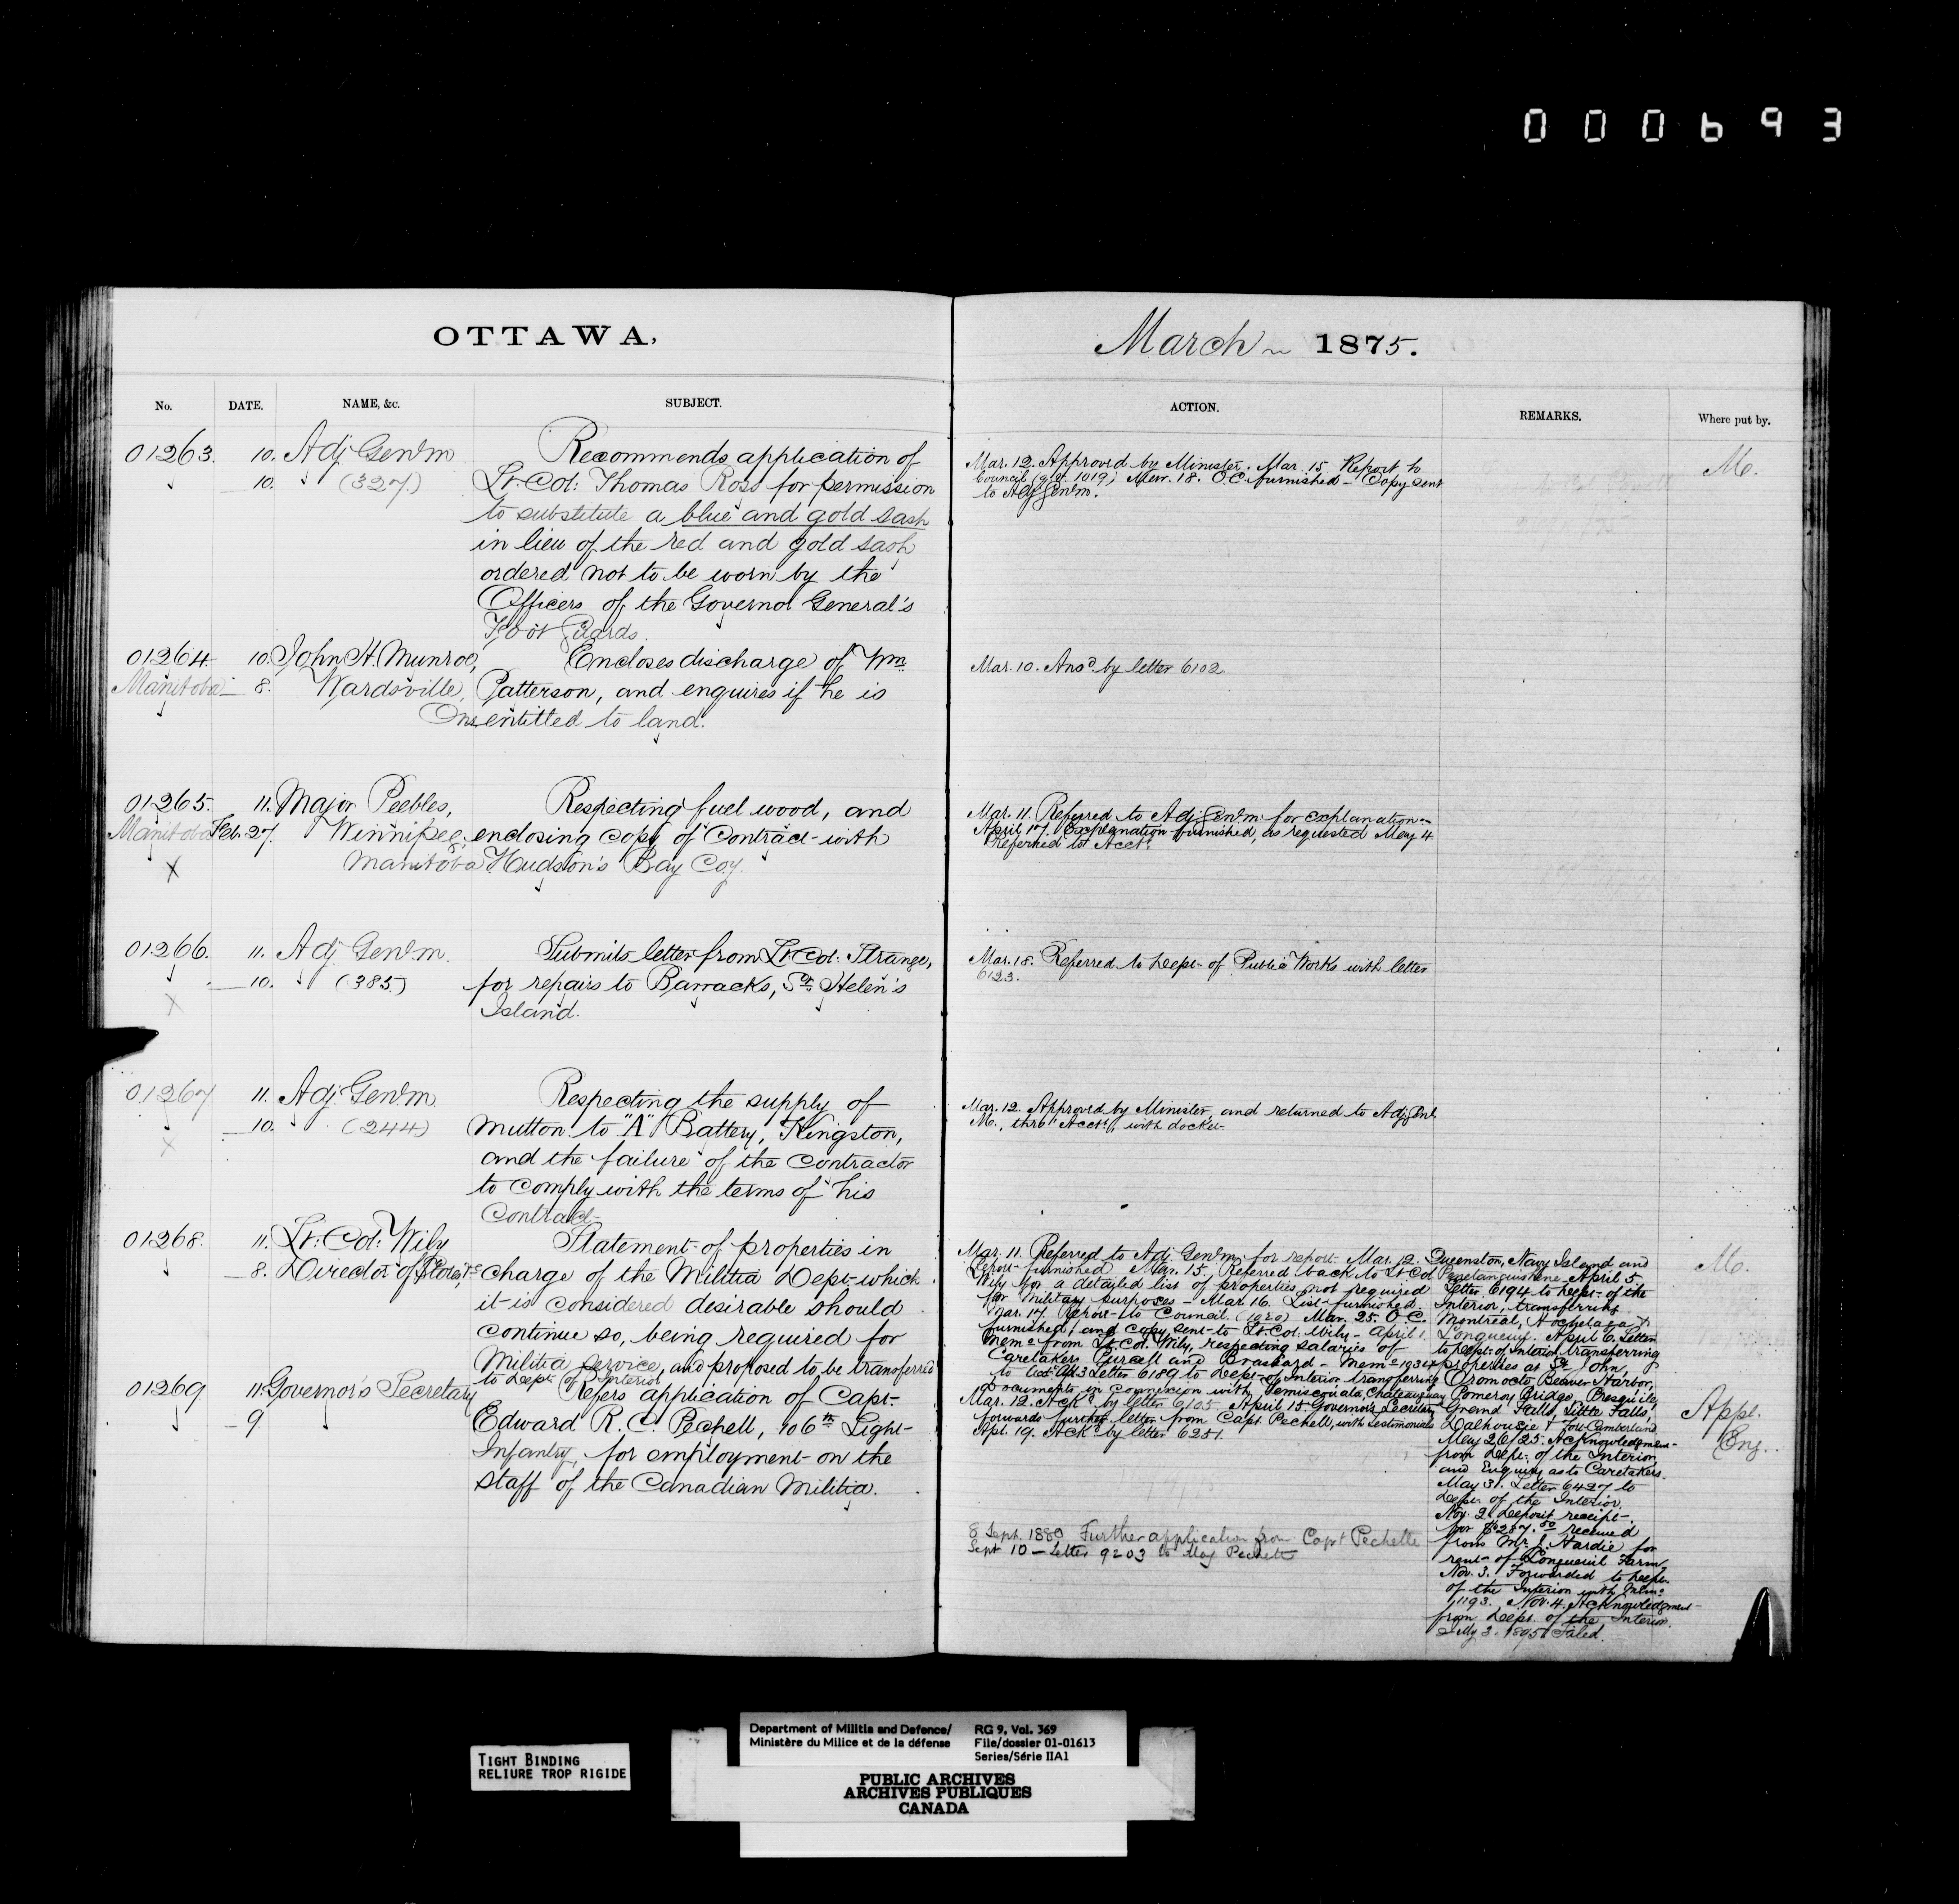 000693
OTTAWA,
No. DATE. NAME, &c. SUBJECT.
01263. 10. Adj Genl m Recommends application of
10. (327.) Lt. Col: Thomas Ross for permission
to substitute a blue and gold sash
in lieu of the red and gold sash
ordered not to be worn by the
Officers of the Governor General's
Foot Guards.
01264 10. John H. Munroe, Encloses discharge of Wm
Manitoba 8. Wardsville, Patterson, and enquires if he is
Ons entitled to land.
01265. 11. Major Peebles, Respecting fuel wood, and
Manitoba Feb. 27. Winnipeg, enclosing copy of Contract with
Manitoba Hudson's Bay Coy.
X
01266. 11. Adj Genl m. Submits letter from Lt Col: Strange,
10. (385) for repairs to Barracks, St. Helen's
X Island.
01267 11. Adj. Genl m. Respecting the supply of
10. (244) Mutton to "A" Battery, Kingston,
X and the failure of the Contractor
to comply with the terms of his
Contract
01268. 11. Lt: Col: Wily Statement of properties in
8. Director of Stores, charge of the Militia Dept. which
it is considered desirable should
continue so, being required for
Militia Service, and proposed to be transferred
to Dept. of Interior
01269 11. Governor's Secretary Refers application of Capt.
9 Edward R. C. Pechell, 106th Light
Infantry, for employment on the
Staff of the Canadian Militia.
March 1875.
ACTION. REMARKS. Where put by.
Mar. 12. Approved by Minister. Mar. 15. Report to M.
Council 1019) Mar. 18. O.C. furnished - Copy sent
to Adj Genl m.
Mar. 10. Ansd by letter 6102
Mar. 11. Referred to Adj Genl m. for explanation
April 17. Explanation furnished, as requested May 4
Referred to Acct.
Mar. 18. Referred to Dept. of Public Works with letter
6123.
Mar. 12. Approved by Minister, and returned to Adj Genl
M., thro' Acct., with docket
Mar. 11. Referred to Adj Genl m. for report. Mar. 12.
Report furnished Mar. 15. Referred back to Lt Col
Wily for a detailed list of properties not required
for Military purposes - Mar. 16. List furnished.
Mar. 17. Report to Council. (1020) Mar. 25. O.C.
furnished, and copy sent to Lt. Col: Wily - April 1.
Memo from Lt. Col. Wily, respecting salaries of
Caretakers Purcell and Brassard - Memo
to Letter 6189 to Dept. of Interior transferring
Documents in connexion with Temiscouata, Chateauguay
Queenston, Navy Island and M.
Penetanguishene April 5.
Letter 6194 to Dept. of the
Interior, transferring
Montreal, Hochelaga &
Longueuil. April 6. Letter
to Dept. of Interior transferring
properties at St. John,
Oromocto, Beaver Harbor,
Pomeroy Bridge, Presquile,
Grand Falls, Little Falls,
Dalhousie & Fort Cumberland
May 26/25. Acknowledgment
from Dept. of the Interior
and Enquiry as to Caretakers.
May 31. Letter 6427 to
Dept. of the Interior.
Nov. 2. Deposit receipt
for received
from Mr J. Hardie for
rent of Longueuil Farm
Nov. 3. Forwarded to Dept.
of the Interior with Memo
1193. Nov. 4. Acknowledgment
from Dept. of the Interior.
Filed.
Mar. 12. Ackd by letter 6105. April 15. Governor's Secretary Appl.
forwards further letter from Capt. Pechell, with testimonials Eng.
Apl. 19. Ackd by letter 6251.
8 Sept. 1880 Further application from Capt Pechelle
Sept 10 - Letter 9203 to Pechelle
TIGHT BINDING
RELIURE TROP RIGIDE
Department of Militia and Defence/ RG 9, Vol. 369
Ministère du Milice et de la défense File/dossier 01-01613
Series/Série IIA1
PUBLIC ARCHIVES
ARCHIVES PUBLIQUES
CANADA